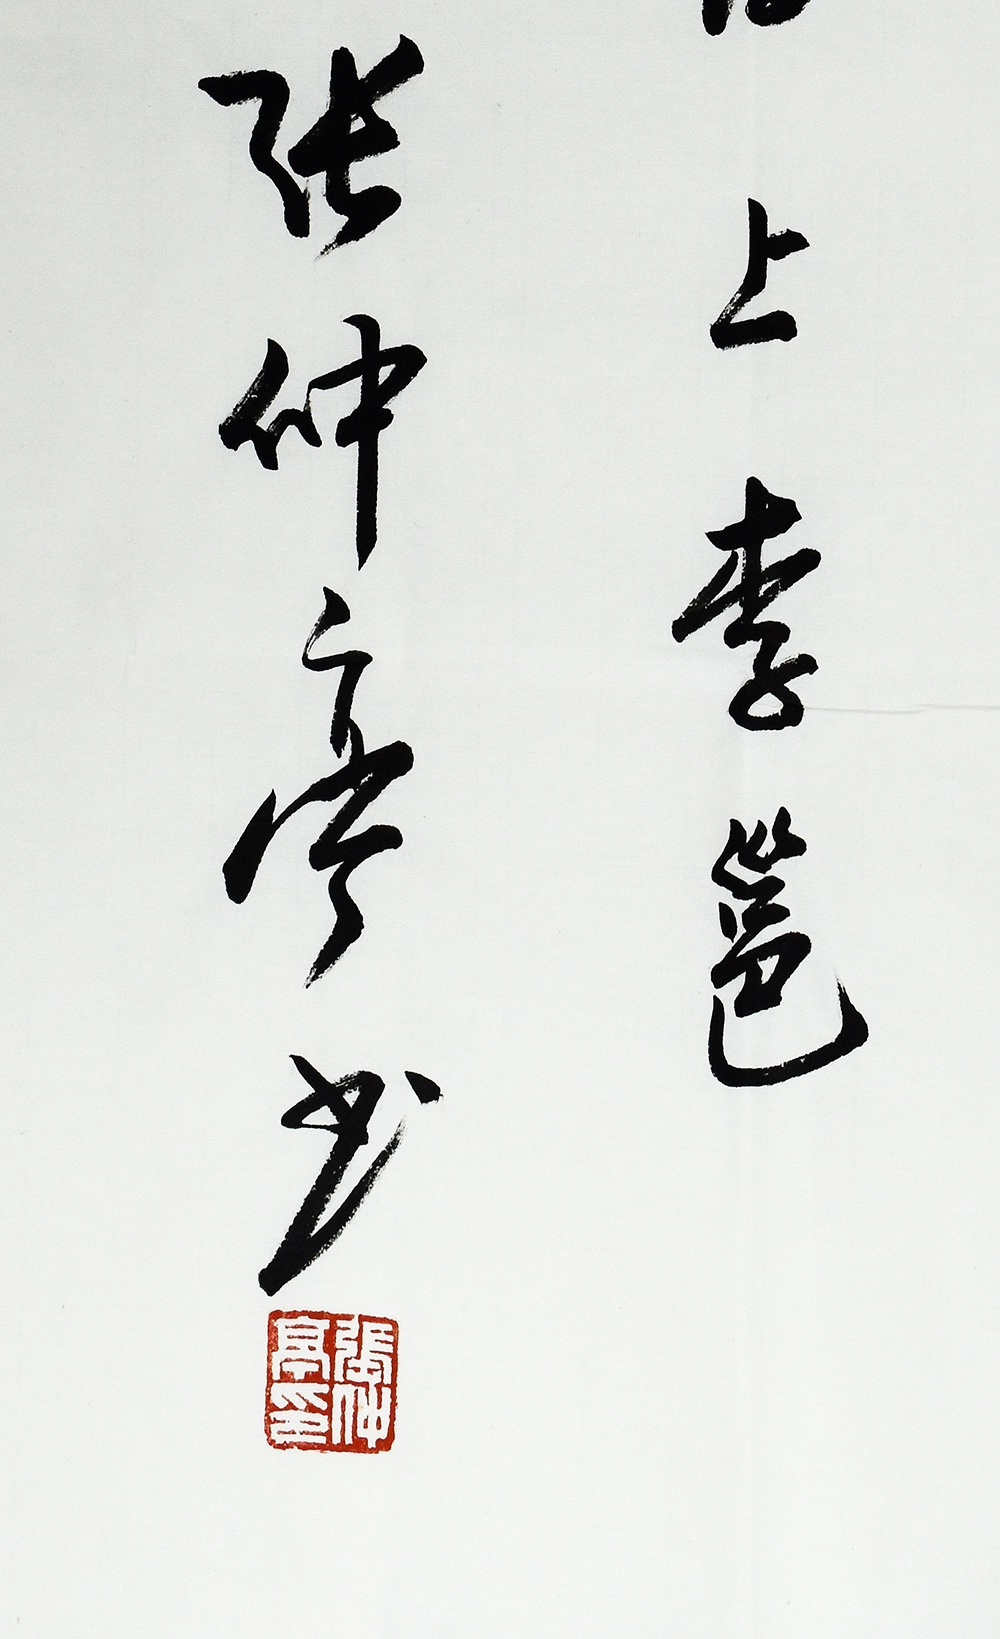 上李邕
张仲亭书
張仲亭印